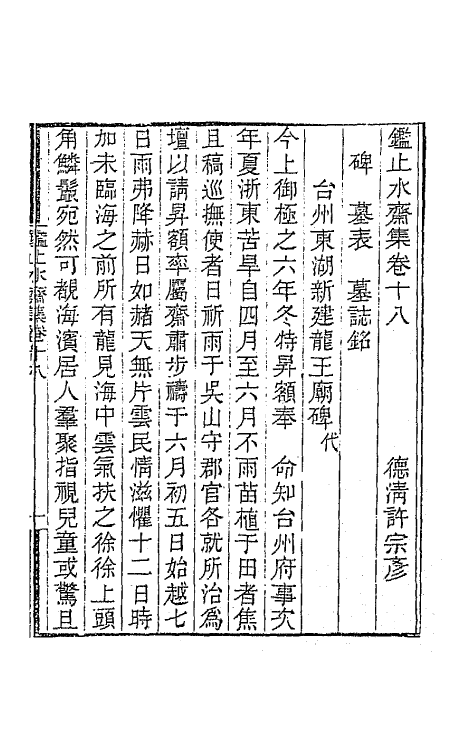 鑑止水齋集卷十八
德淸許宗彥
碑　墓表　墓誌銘
台州東湖新建龍王廟碑代
今上御極之六年冬特昇額奉　命知台州府事次
年夏浙東苦旱自四月至六月不雨苗植于田者焦
且稿巡撫使者日祈雨于吳山守郡官各就所治爲
壇以請昇額率屬齋肅步禱于六月初五日始越七
日雨弗降赫日如赭天無片雲民情滋懼十二日時
加未臨海之前所有龍見海中雲氣扶之徐徐上頭
角鱗鬣宛然可覩海濱居人羣聚指視兒童或驚且
鑑止水齋集卷十八
一